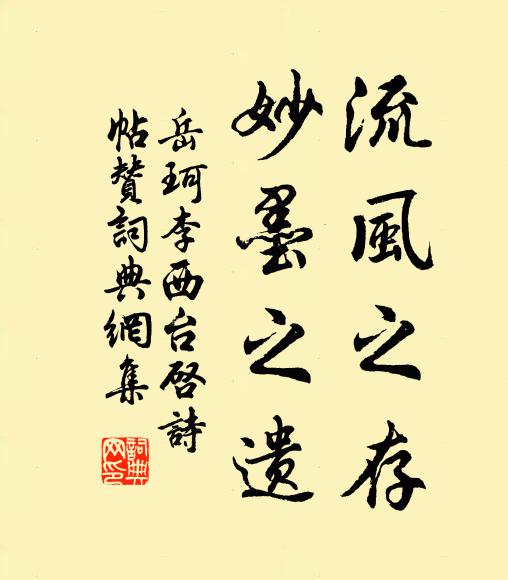 流風之存
妙墨之遗
岳珂李西台啓詩
帖賛詞典網集
詞典
网印